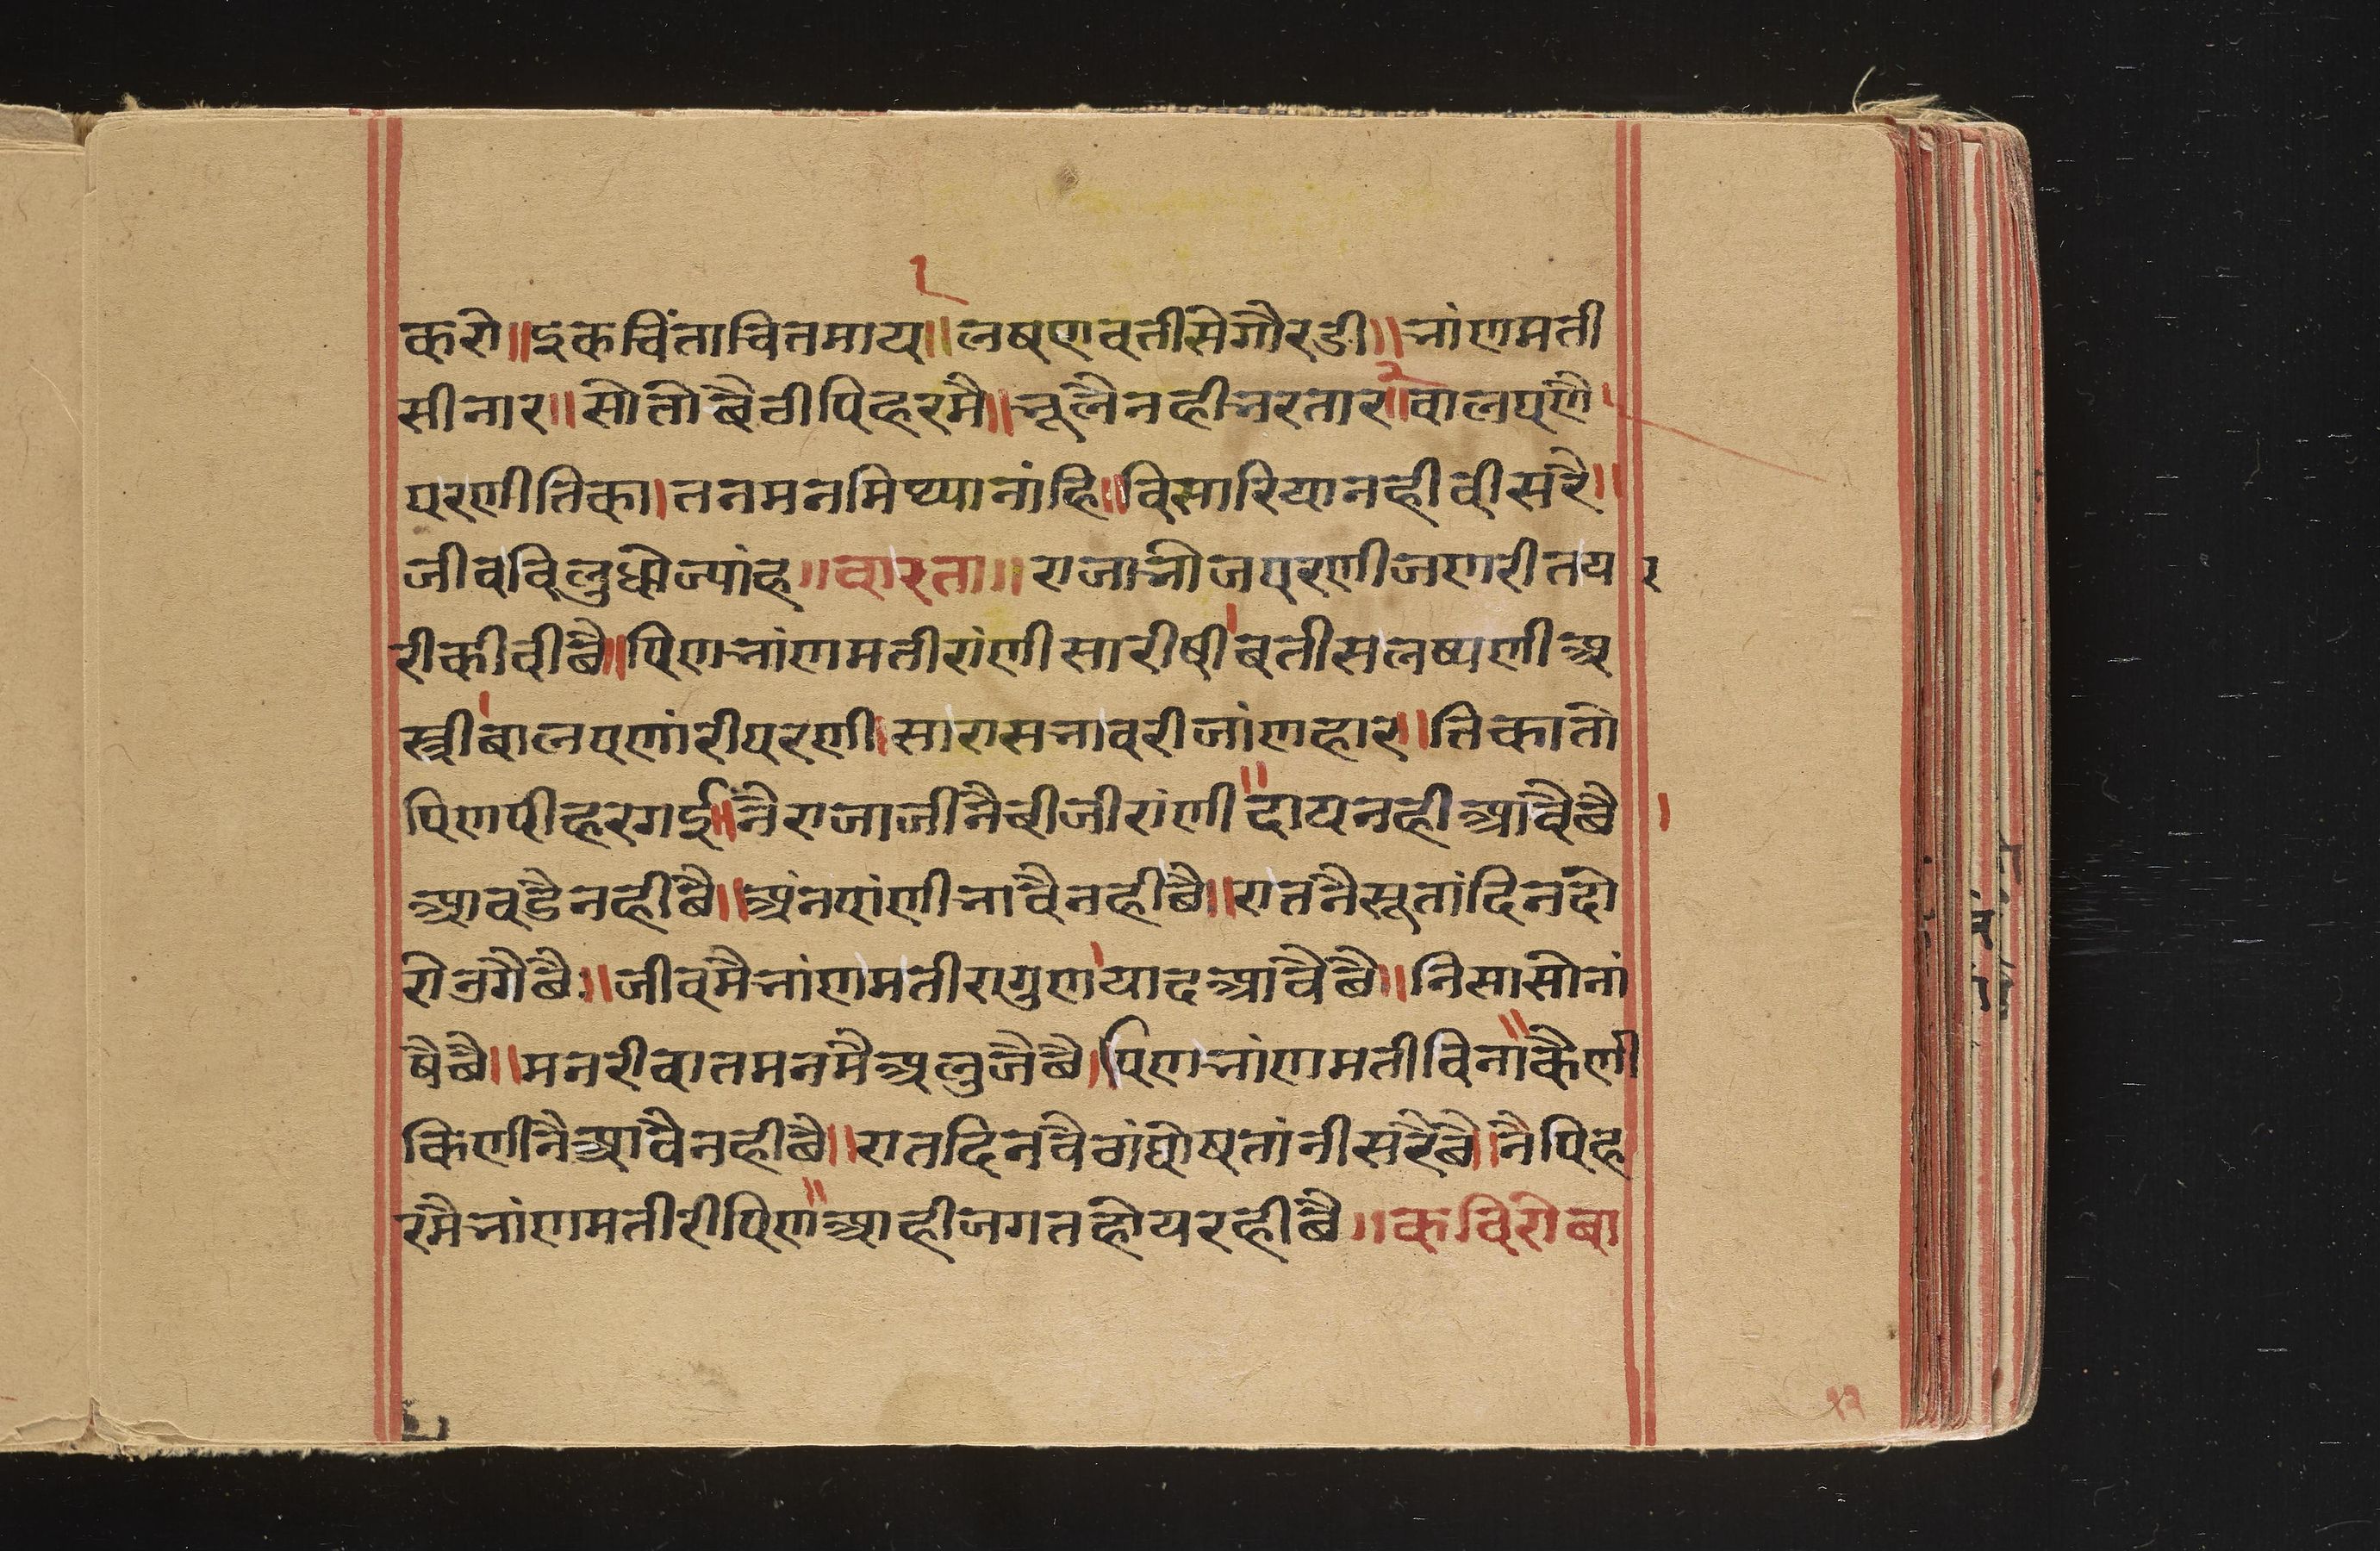 १
करो॥इकचिंताचितमाय॥लषणवतीसेगौरडी॥भांणमती
सीनार॥सोतोबैठीपिहरमै॥भूलैनहीभरतार॥२बालपणै
परणीतिका।तनमनमिथ्यानांहि॥विसारियानहीवीसरै॥
जीवविलुधोज्यांह॥वारता॥राजाभोजपरणीजणरीतया
रीकीवीछै॥पिणभांणमतीरांणीसारीषी।बतीसलष्यणीअ
स्त्री।बालपणांरीपरणी।सारासभावरीजांणहार॥तिकातो
पिणपीहरगई॥नैराजाजीनैबीजीरांणी॥दायनहीआवैछै।
आवडैनहीछै॥अंनपांणीभावैनहीछै॥रातनैसूतांदिनदो
रोउगैछै॥जीवमैभांणमतीरागुण।यादआवैछै॥निसासोनां
षैछै॥मनरीवातमनमैअलुजैछै॥पिणभांणमतीविना॥कैणी
किणीनैआवैनहीछै॥रातदिनवैठांघोषतांनीसरैछै॥नैपिह
रमैभांणमतीरीपिण॥आहीजगतहोयरहीछै॥कविरोवा
१२